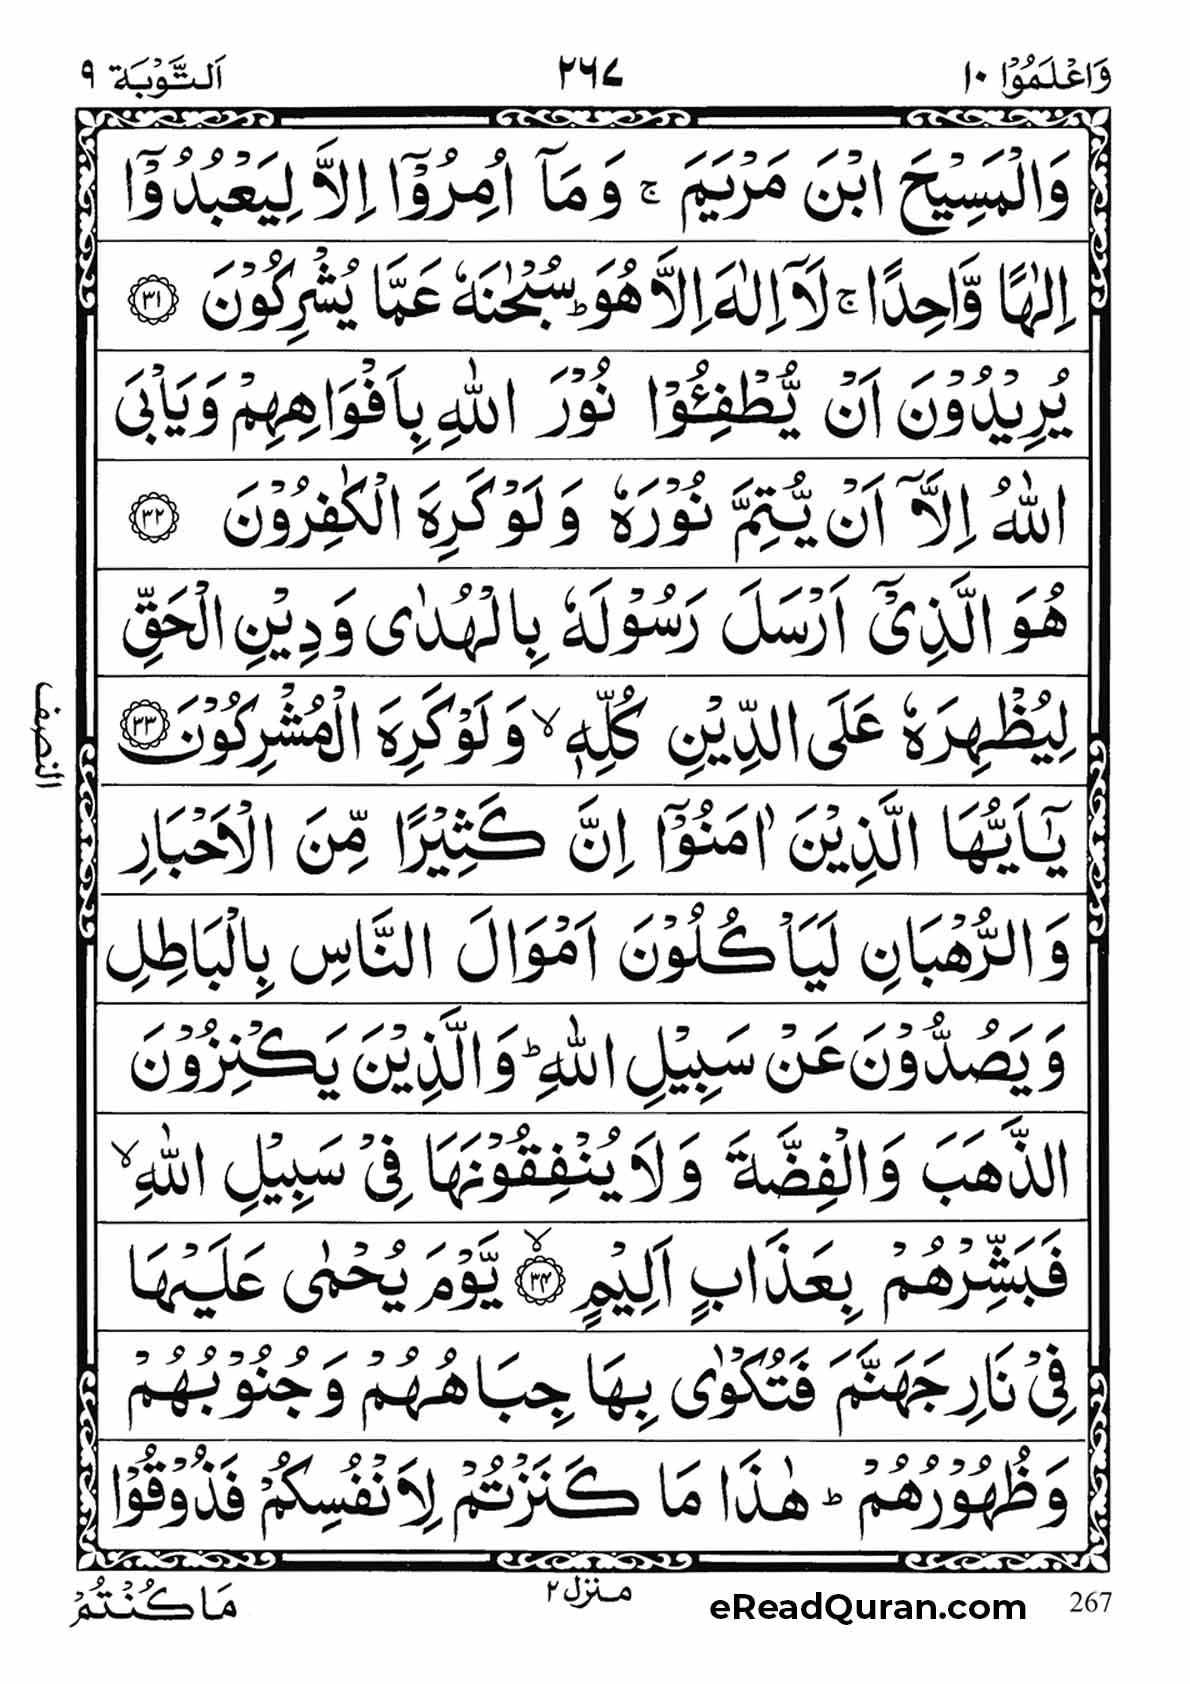 وَاعْلَمُوْۤا ١٠
٢٦٧
اَلتَّوْبَة ٩
وَالْمَسِيْحَ ابْنَ مَرْيَمَ ۚ وَمَاۤ اُمِرُوْۤا اِلَّا لِيَعْبُدُوْۤا
اِلٰهًا وَّاحِدًا ۚ لَاۤ اِلٰهَ اِلَّا هُوَ ؕ سُبْحٰنَهٗ عَمَّا يُشْرِكُوْنَ ﴿٣١﴾
يُرِيْدُوْنَ اَنْ يُّطْفِـُٔوْا نُوْرَ اللّٰهِ بِاَفْوَاهِهِمْ وَيَاْبَى
اللّٰهُ اِلَّاۤ اَنْ يُّتِمَّ نُوْرَهٗ وَلَوْ كَرِهَ الْكٰفِرُوْنَ ﴿٣٢﴾
هُوَ الَّذِىْۤ اَرْسَلَ رَسُوْلَهٗ بِالْهُدٰى وَدِيْنِ الْحَقِّ
لِيُظْهِرَهٗ عَلَى الدِّيْنِ كُلِّهٖ ۙ وَلَوْ كَرِهَ الْمُشْرِكُوْنَ ﴿٣٣﴾
النصف
يٰۤاَيُّهَا الَّذِيْنَ اٰمَنُوْۤا اِنَّ كَثِيْرًا مِّنَ الْاَحْبَارِ
وَالرُّهْبَانِ لَيَاْكُلُوْنَ اَمْوَالَ النَّاسِ بِالْبَاطِلِ
وَيَصُدُّوْنَ عَنْ سَبِيْلِ اللّٰهِ ؕ وَالَّذِيْنَ يَكْنِزُوْنَ
الذَّهَبَ وَالْفِضَّةَ وَلَا يُنْفِقُوْنَهَا فِىْ سَبِيْلِ اللّٰهِ ۙ
فَبَشِّرْهُمْ بِعَذَابٍ اَلِيْمٍ ۙ﴿٣٤﴾ يَّوْمَ يُحْمٰى عَلَيْهَا
فِىْ نَارِ جَهَنَّمَ فَتُكْوٰى بِهَا جِبَاهُهُمْ وَجُنُوْبُهُمْ
وَظُهُوْرُهُمْ ؕ هٰذَا مَا كَنَزْتُمْ لِاَنْفُسِكُمْ فَذُوْقُوْا
مَا كُنْتُمْ
منزل ٢
eReadQuran.com
267